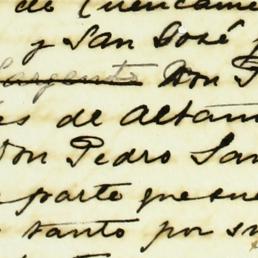 de Cuencame
y San José y
Sargento Don P
es de Altam
Don Pedro San
parte que su
tanto por su